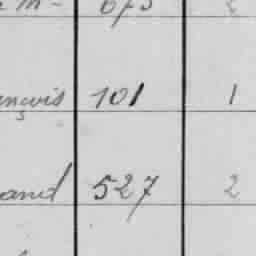 675 2
ançois 101 1
and 527 2